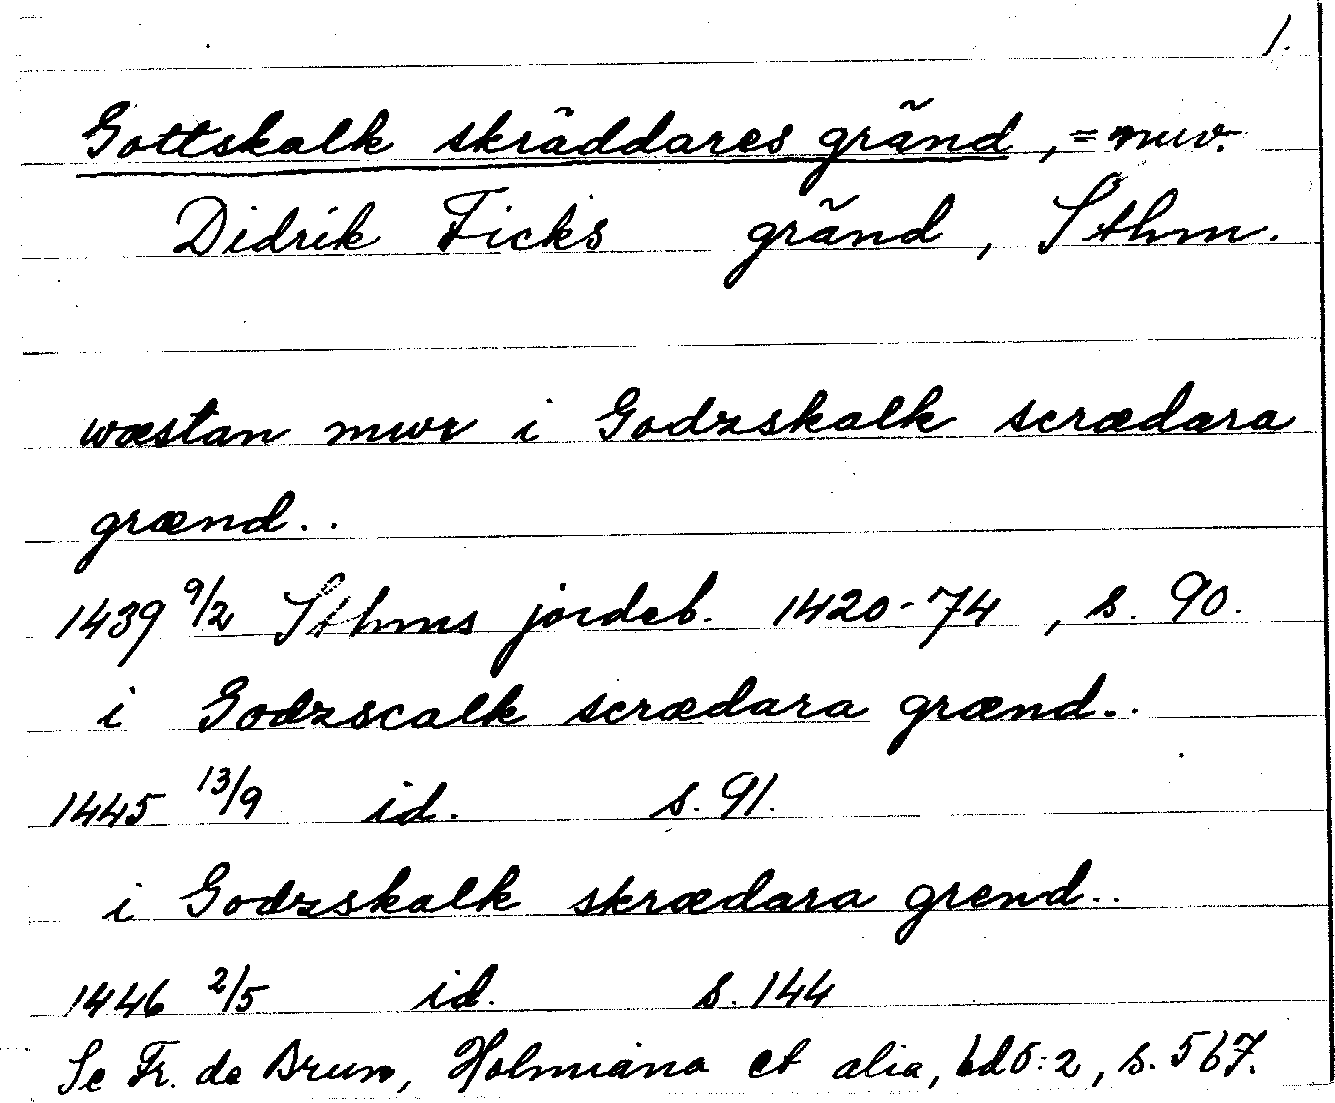 1.
Gottskalk skräddares gränd, = nuv.
Didrik Ficks gränd, Sthm.
wæstan mwr i Godzskalk scrædara
grænd..
1439 9/2 Sthms jordeb. 1420-74, s. 90.
i Godzscalk scrædara grænd..
1445 13/9 id. s. 91.
i Godzskalk skrædara grend..
1446 2/5 id. s. 144
Se Fr. de Brun, Holmiana et alia, bd 5:2, s. 567.